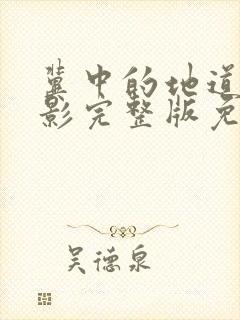 冀中的地道
影完整版免
吴德泉